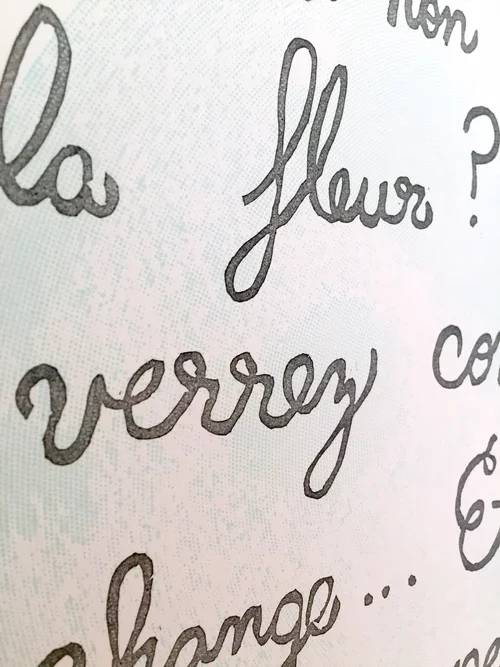 non
la fleur ?
verrez
change...